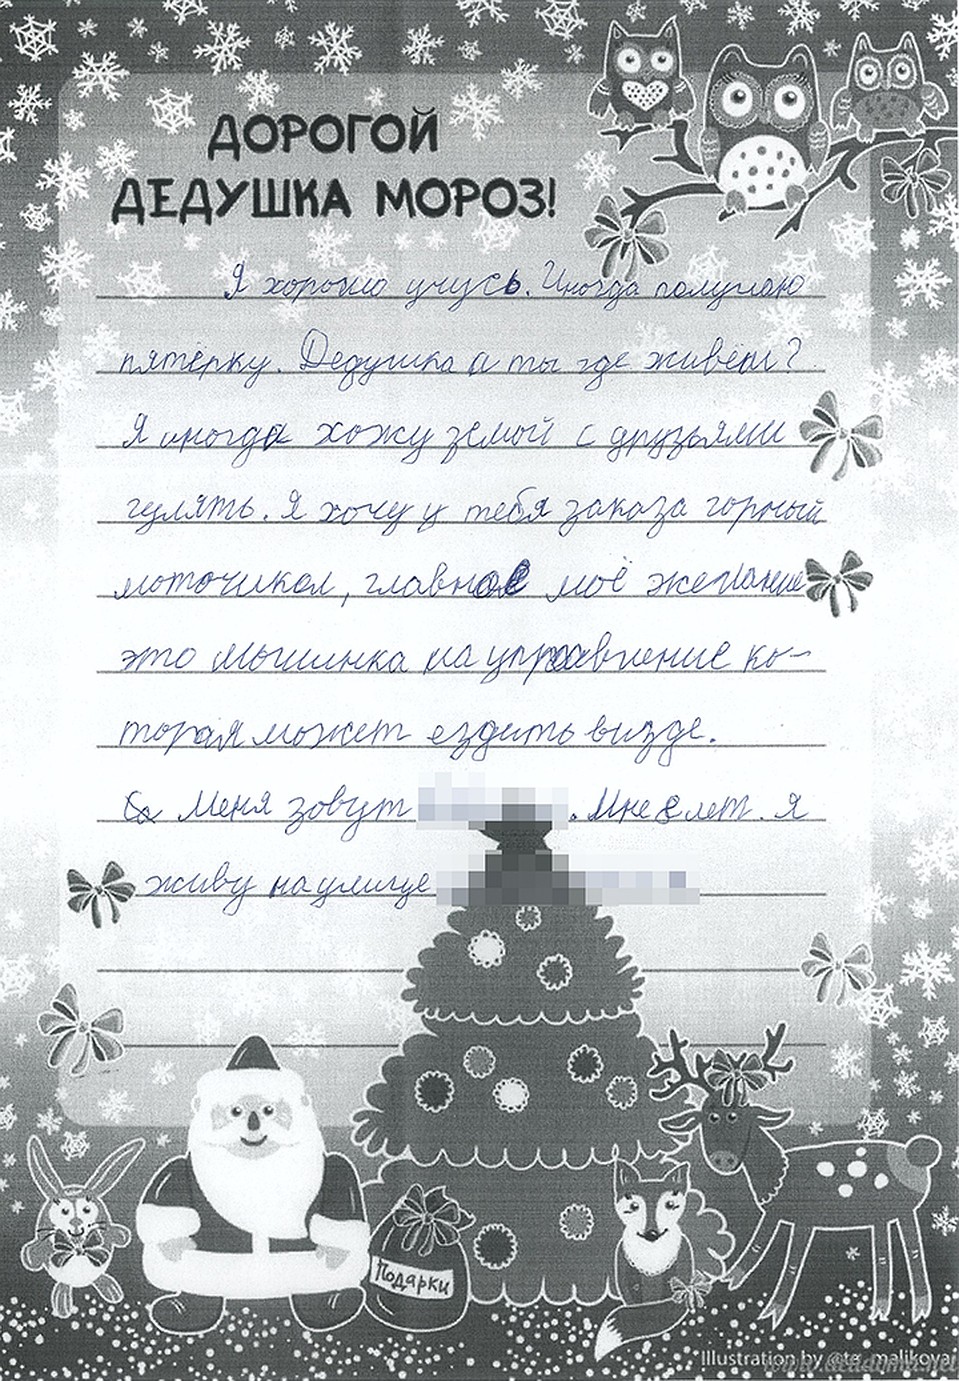 ДОРОГОЙ
ДЕДУШКА МОРОЗ!
Я хорошо учусь. Иногда получаю
пятёрку. Дедушка а ты где живёш?
Я иногда хожу земой с друзьями
гулять. Я хочу у тебя заказа горный
моточикол, главное моё желание
это мышинка на управление ко-
торая может ездить визде.
Меня зовут . Мне 8 лет. я
живу на улице
Подарки
Illustration by @te_malikova